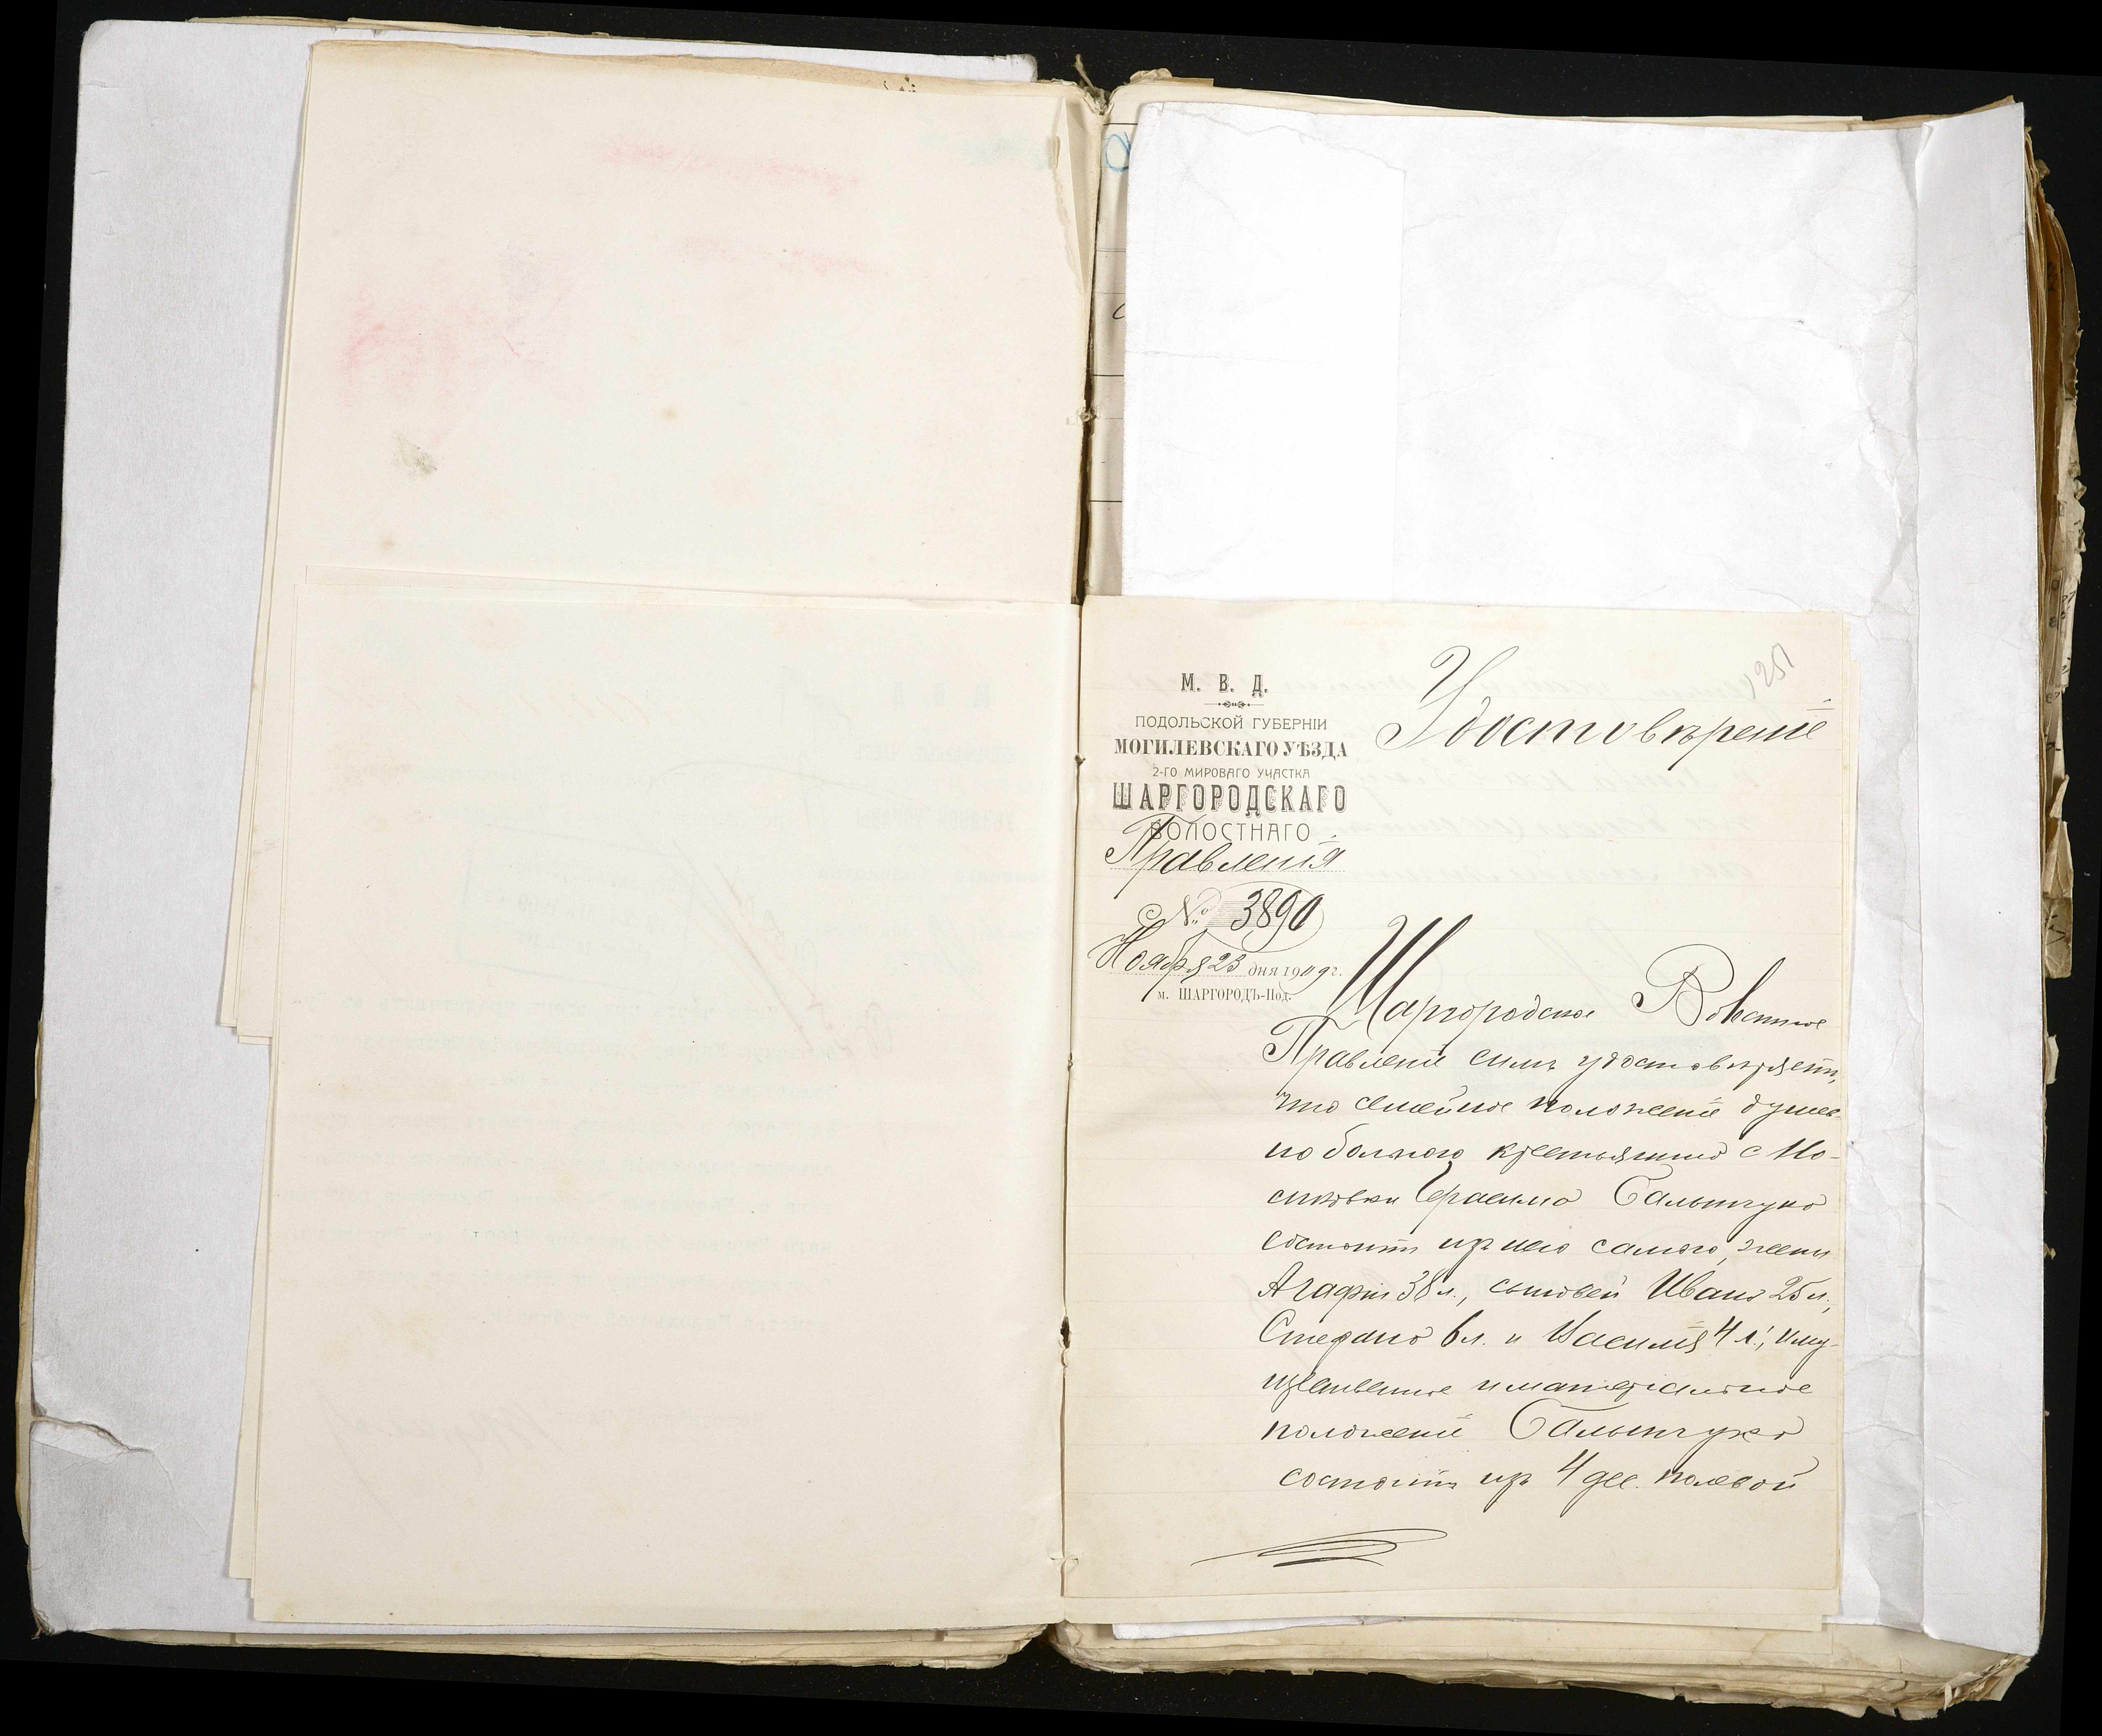 251
М. В. Д.
ПОДОЛЬСКОЙ ГУБЕРНІИ
МОГИЛЕВСКАГО УѢЗДА
2-ГО МИРОВАГО УЧАСТКА
ШАРГОРОДСКАГО
ВОЛОСТНАГО
Правленія
№ 3890
Ноября 23 дня 1909 г.
м. ШАРГОРОДЪ-Под.
Удостовѣреніе
Шаргородское Волостное
Правленіе симъ удостовѣряетъ,
что семейное положеніе душев-
но больного крестьянина с Но-
сиковки Герасима Бальтчука
состоитъ изъ него самого, жены
Агафіи 38 л., сыновей Ивана 25 л.,
Стефана 6 л. и Василія 4 л., иму-
щественное и матеріальное
положеніе Бальтчука
состоитъ изъ 4 дес. полевой